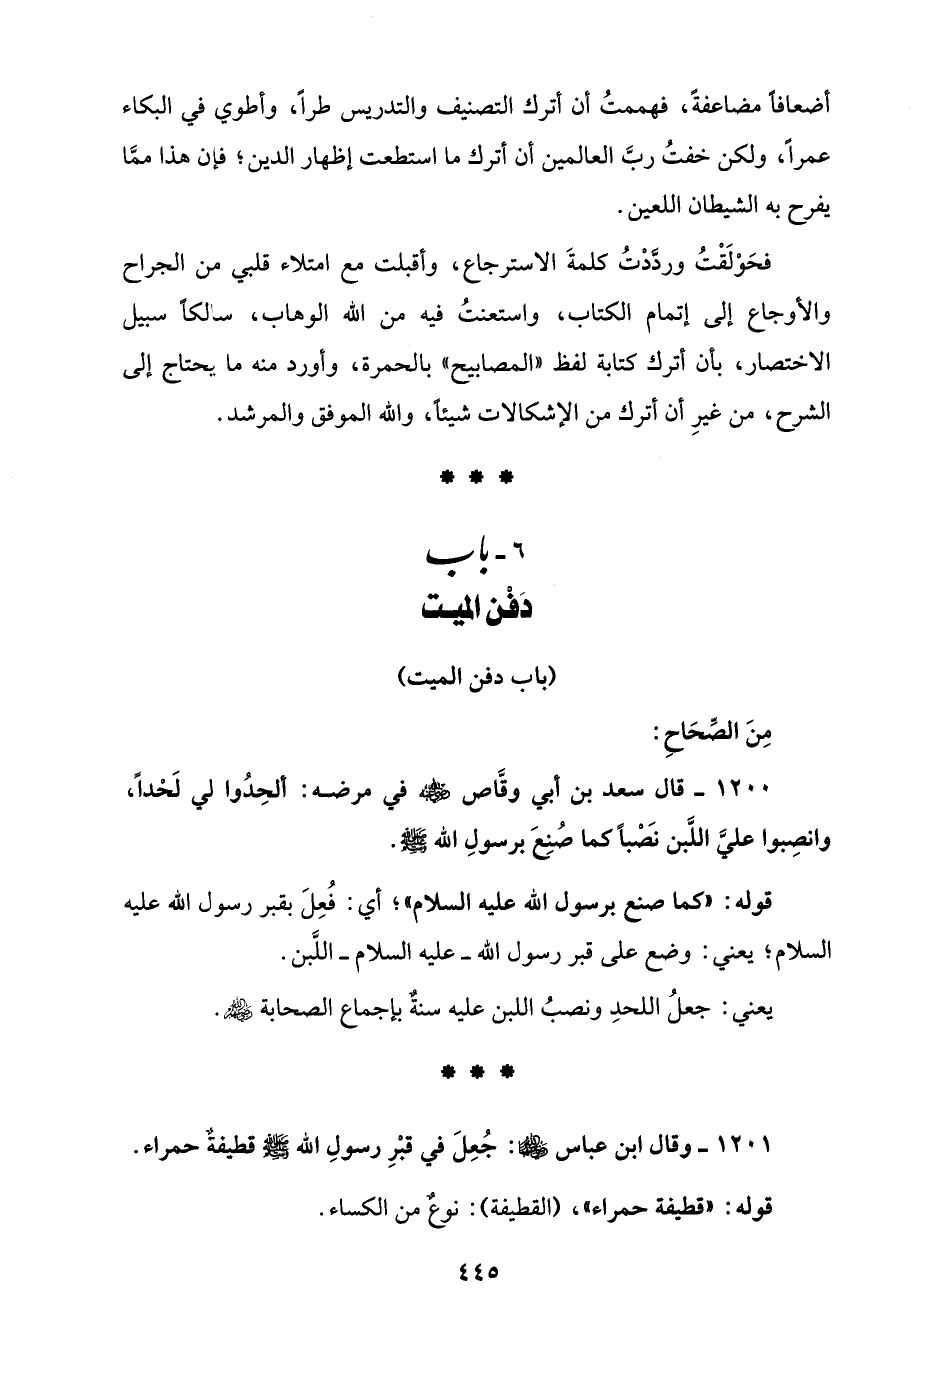 أضعافاً مضاعفةً، فهممتُ أن أترك التصنيف والتدريس طراً، وأطوي في البكاء
عمراً، ولكن خفتُ ربَّ العالمين أن أترك ما استطعت إظهار الدين؛ فإن هذا ممَّا
يفرح به الشيطان اللعين.
فحَوْلَقْتُ وردَّدْتُ كلمةَ الاسترجاع، وأقبلت مع امتلاء قلبي من الجراح
والأوجاع إلى إتمام الكتاب، واستعنتُ فيه من الله الوهاب، سالكاً سبيل
الاختصار، بأن أترك كتابة لفظ «المصابيح» بالحمرة، وأورد منه ما يحتاج إلى
الشرح، من غيرِ أن أترك من الإشكالات شيئاً، والله الموفق والمرشد.
* * *
٦ - باب
دَفْن الميت
(باب دفن الميت)
مِنَ الصِّحَاحِ:
١٢٠٠ - قال سعد بن أبي وقَّاص ﵁ في مرضه: ألحِدُوا لي لَحْداً،
وانصِبوا عليَّ اللَّبن نَصْباً كما صُنِعَ برسولِ الله ﷺ.
قوله: «كما صنع برسول الله عليه السلام»؛ أي: فُعِلَ بقبر رسول الله عليه
السلام؛ يعني: وضع على قبر رسول الله - عليه السلام - اللَّبن.
يعني: جعلُ اللحدِ ونصبُ اللبن عليه سنةٌ بإجماع الصحابة ﵃.
* * *
١٢٠١ - وقال ابن عباس ﵄: جُعِلَ في قبْرِ رسولِ الله ﷺ قطيفةٌ حمراء.
قوله: «قطيفة حمراء»، (القطيفة): نوعٌ من الكساء.
٤٤٥